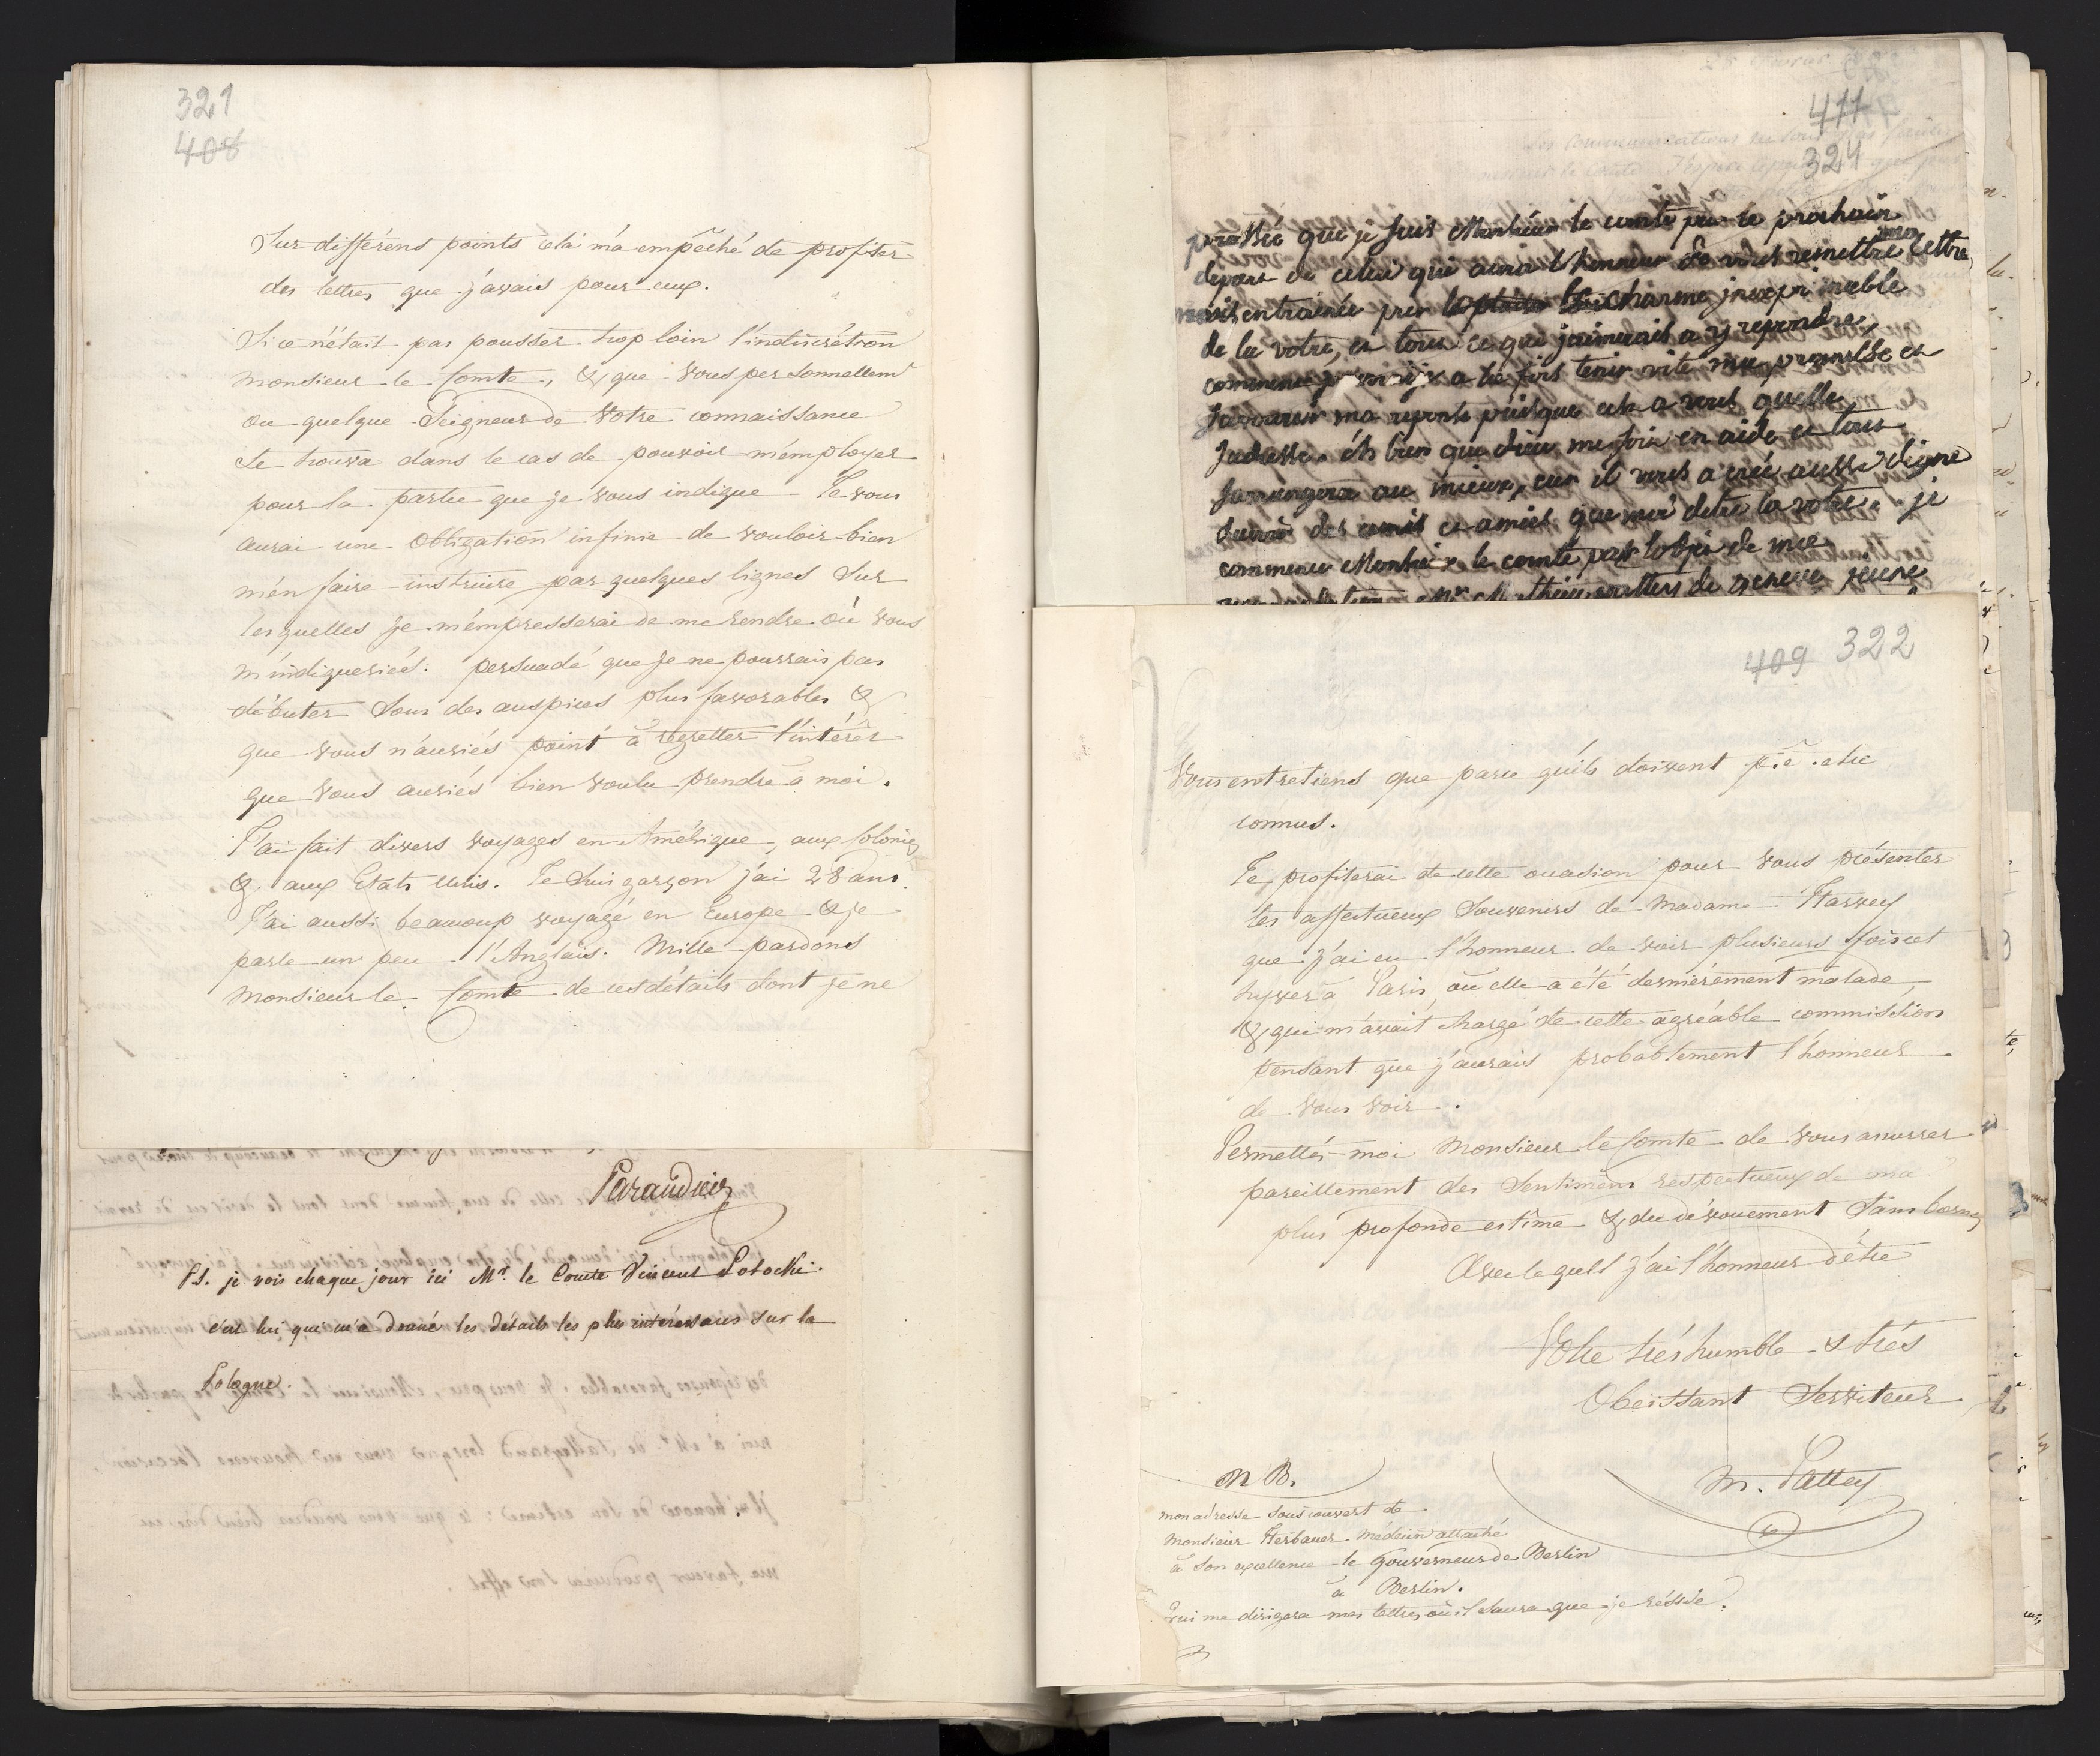 321
408
Sur différens points cela m'a empêché de profiter
des lettres que j'avais pour eux.
Si ce n'était pas pousser trop loin l'indiscrétion
Monsieur le Comte, & que vous personnellemt
ou quelque Seigneur de votre connaissance
se trouva dans le cas de pouvoir m'employer
pour la partie que je vous indique - Je vous
aurai une obligation infinie de vouloir bien
m'én faire instruire par quelques lignes sur
lesquelles je m'émpresserai de me rendre où vous
m'indiqueriés. persuadé que je ne pourrais pas
débuter sous des auspices plus favorables &
que vous n'auriés point à regretter l'intérêt
que vous auriés bien voulu prendre à moi.
J'ai fait divers voyages en Amérique, aux Colonies
& aux Etats Unis. Je suis garçon j'ai 28 ans.
J'ai aussi beaucoup voyagé en Europe & je
parle un peu l'Anglais. Mille pardons
Monsieur le Comte de ces détails dont je ne
Parandier
PS. je vois chaque jour ici Mr. le Comte Vincent Potocki.
c'est lui qui m'a donné les détails les plus intéressans sur la
Pologne.
411
324
pressée que je suis Monsieur le comte par le prochain
depart de celui qui aura l'honneur de vous remettre ma lettre
mais entrainée par le charme inexprimable
de la votre, et tous ce que j'aimerais a y repondre,
commence a la fois tenir vite ma promesse et
savourer ma reponse puisque cest a vous quelle
sadresse. eh bien que dieu me soit en aide et tous
sarrangera au mieux, car il vous a créé aussi digne
davoir des amis et amies que moi detre la votre. je
commence Monsieur le comte par lobjet de ma
de geneve jeune
409 322
Vous entretiens que parce qu'ils doivent être
connus.
Je profiterai de cette occasion pour vous présenter
les affectueux souvenirs de Madame Harvey
que j'ai eu l'honneur de voir plusieurs fois cet
hyver à Paris, où elle a été dernièrement malade,
& qui m'avait chargé de cette agréable commission
pensant que j'aurais probablement l'honneur
de vous voir.
Permettés-moi Monsieur le Comte de vous assurer
pareillement des sentimens respectueux de ma
plus profonde estime & du dévouement sans bornes
Avec lequel j'ai l'honneur d'être
Votre très humble & très
Obeissant Serviteur
M. Pattey
NB.
mon adresse sous couvert de
Monsieur Herbauer Médecin attaché
à son excellence le Gouverneur de Berlin
à Berlin.
qui me dirigera mes lettres où il saura que je réside.